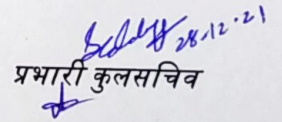 28.12.21
प्रभारी कुलसचिव